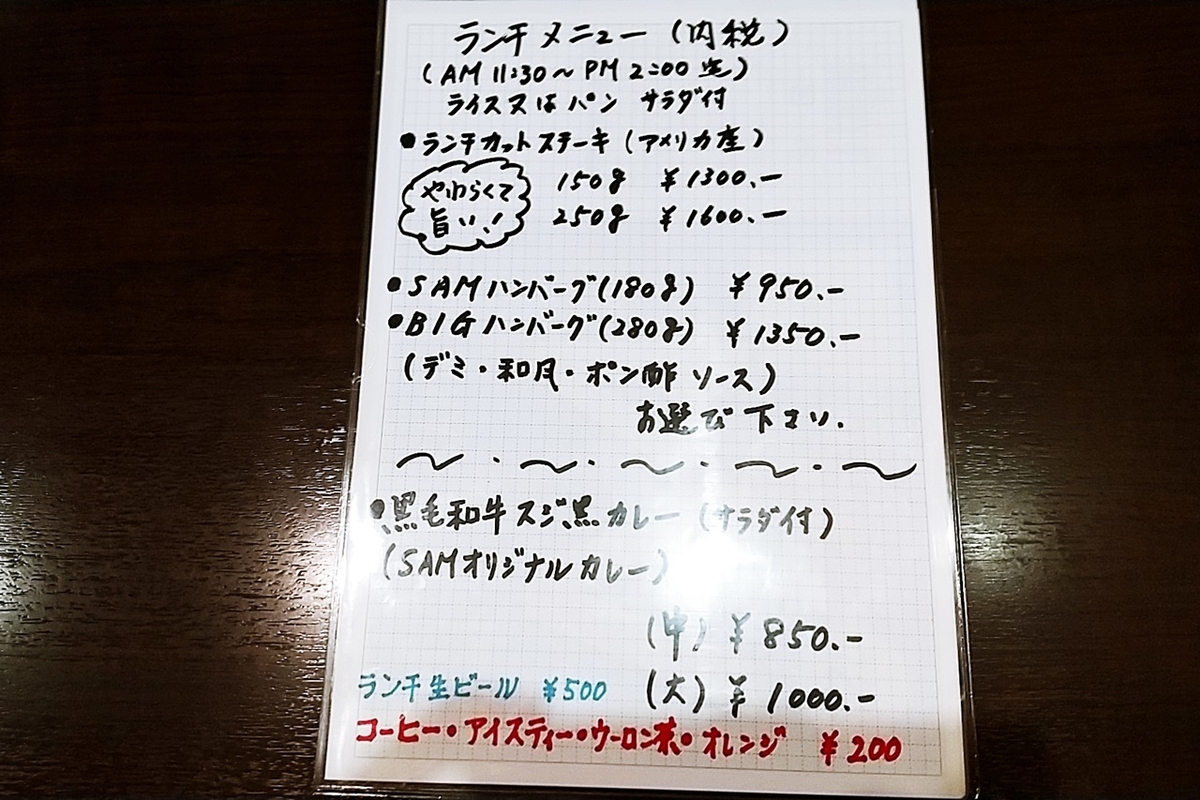 ランチメニュー(内税)
(AM 11:30～PM 2:00迄)
ライス又はパン サラダ付
●ランチカットステーキ(アメリカ産)
やわらくて
旨い!
150g ¥1300.-
250g ¥1600.-
●SAMハンバーグ(180g) ¥950.-
●BIGハンバーグ(280g) ¥1350.-
(デミ・和風・ポン酢 ソース)
お選び下さい.
●黒毛和牛スジ黒カレー(サラダ付)
(SAMオリジナルカレー)
(中) ¥850.-
(大) ¥1000.-
ランチ生ビール ¥500
コーヒー・アイスティー・ウーロン茶・オレンジ ¥200